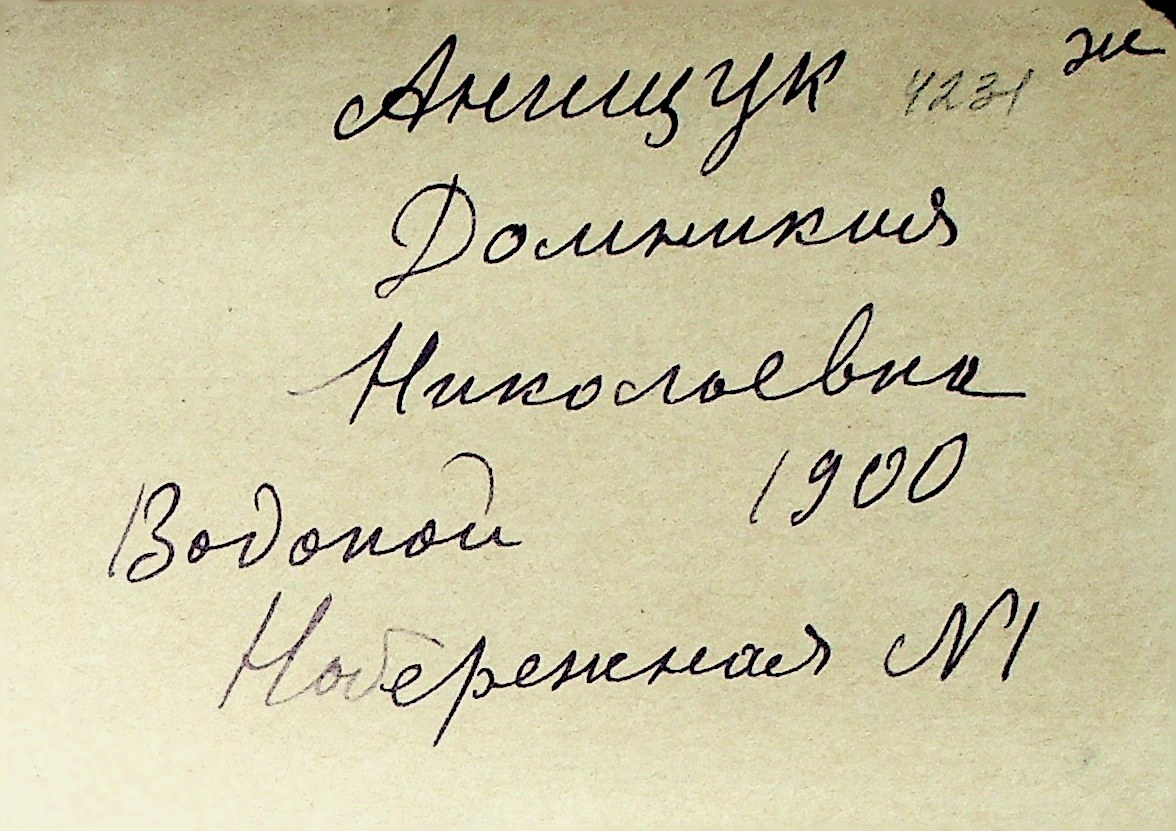 Анищук 4231 ж
Домникия
Николаевна
1900
Водопой
Набережная №1